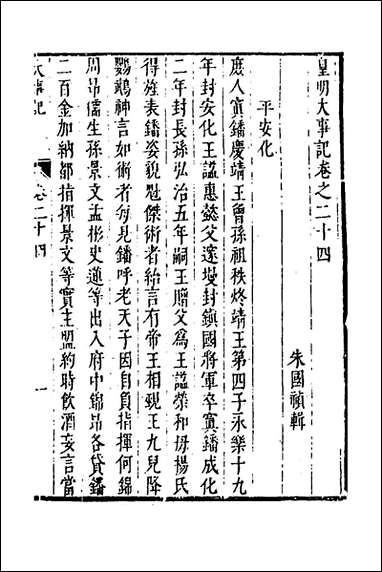 皇明大事記卷之二十四
朱國禎輯
平安化
庶人寘鐇慶靖王曾孫祖秩炵靖王第四子永樂十九
年封安化王諡惠懿父邃墁封鎮國將軍卒寘鐇成化
二年封長孫弘治五年嗣王贈父爲王諡榮和毋楊氏
得姓表鐇姿貌魁傑術者紿言有帝王相覡王九兒降
鸚鵡神言如術者每見鐇呼老天子因自負指揮何錦
周昂儒生孫景文孟彬史連等出入府中錦昂各貸鐇
二百金加納都指揮景文等實主盟約時飲酒妄言當
大事記
卷二十四
一